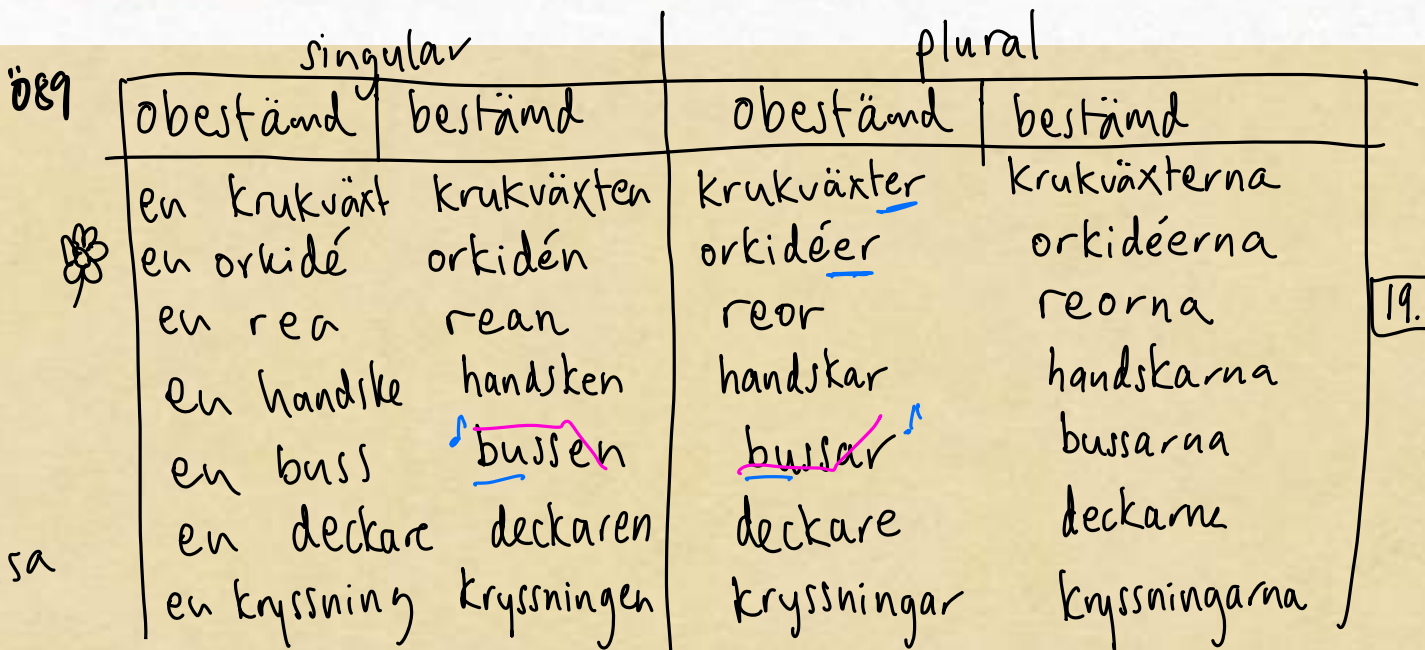 singular plural
Ö89 obestämd bestämd obestämd bestämd
en krukväxt krukväxten krukväxter krukväxterna
en orkidé orkidén orkidéer orkidéerna
en rea rean reor reorna 19.
en handske handsken handskar handskarna
en buss bussen bussar bussarna
en deckare deckaren deckare deckarna
sa
en kryssning kryssningen kryssningar kryssningarna